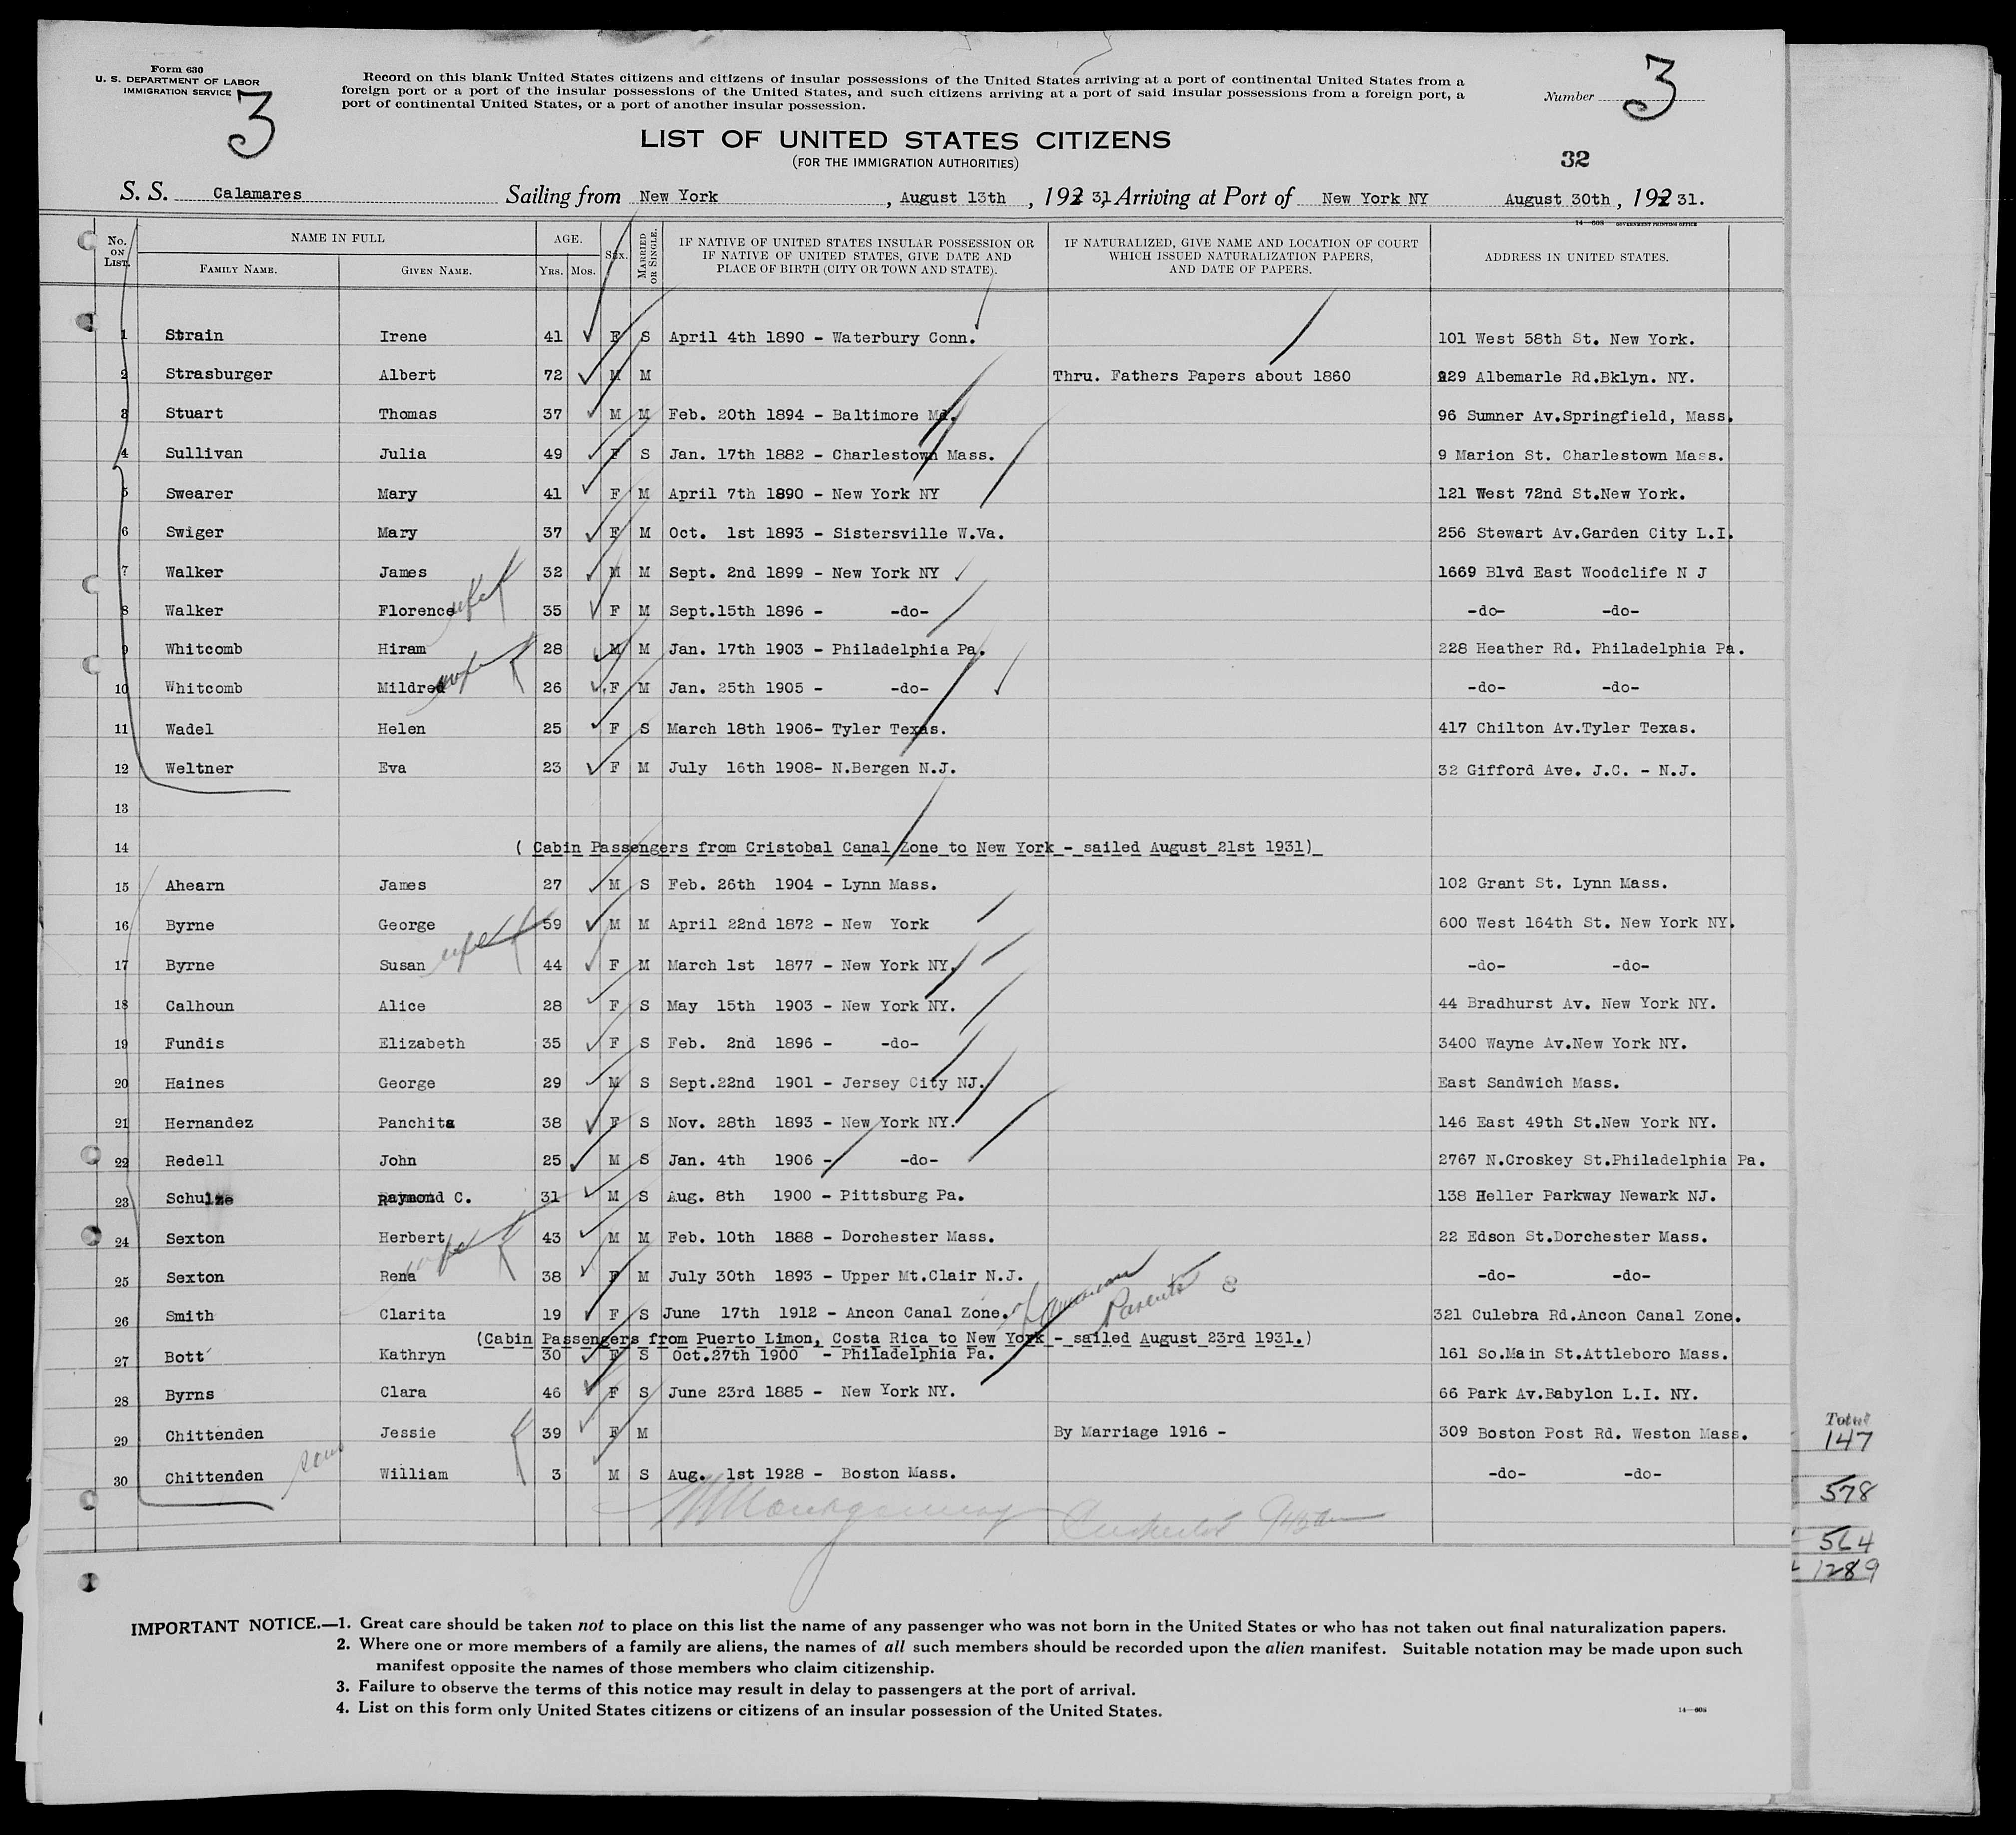 Form 630
U. S. DEPARTMENT OF LABOR
IMMIGRATION SERVICE
3
Record on this blank United States citizens and citizens of insular possessions of the United States arriving at a port of continental United States from a
foreign port or a port of the insular possessions of the United States, and such citizens arriving at a port of said insular possessions from a foreign port, a
port of continental United States, or a port of another insular possession.
Number 3
LIST OF UNITED STATES CITIZENS
(FOR THE IMMIGRATION AUTHORITIES)
32
S. S. Calamares Sailing from New York , August 13th , 192 31, Arriving at Port of New York NY August 30th , 192 31.
14—608 GOVERNMENT PRINTING OFFICE
No. ON LIST. NAME IN FULL FAMILY NAME. GIVEN NAME. AGE. YRS. MOS. SEX. MARRIED OR SINGLE. IF NATIVE OF UNITED STATES INSULAR POSSESSION OR IF NATIVE OF UNITED STATES, GIVE DATE AND PLACE OF BIRTH (CITY OR TOWN AND STATE). IF NATURALIZED, GIVE NAME AND LOCATION OF COURT WHICH ISSUED NATURALIZATION PAPERS, AND DATE OF PAPERS. ADDRESS IN UNITED STATES.
1 Strain Irene 41 F S April 4th 1890 - Waterbury Conn. 101 West 58th St. New York.
2 Strasburger Albert 72 M M Thru. Fathers Papers about 1860 229 Albemarle Rd.Bklyn. NY.
3 Stuart Thomas 37 M M Feb. 20th 1894 - Baltimore Md. 96 Sumner Av.Springfield, Mass.
4 Sullivan Julia 49 F S Jan. 17th 1882 - Charlestown Mass. 9 Marion St. Charlestown Mass.
5 Swearer Mary 41 F M April 7th 1890 - New York NY 121 West 72nd St.New York.
6 Swiger Mary 37 F M Oct. 1st 1893 - Sistersville W.Va. 256 Stewart Av.Garden City L.I.
7 Walker James 32 M M Sept. 2nd 1899 - New York NY 1669 Blvd East Woodclife N J
8 Walker Florence wife 35 F M Sept.15th 1896 - -do- -do- -do-
9 Whitcomb Hiram 28 M M Jan. 17th 1903 - Philadelphia Pa. 228 Heather Rd. Philadelphia Pa.
10 Whitcomb Mildred wife 26 F M Jan. 25th 1905 - -do- -do- -do-
11 Wadel Helen 25 F S March 18th 1906- Tyler Texas. 417 Chilton Av.Tyler Texas.
12 Weltner Eva 23 F M July 16th 1908- N.Bergen N.J. 32 Gifford Ave. J.C. - N.J.
13
14 ( Cabin Passengers from Cristobal Canal Zone to New York - sailed August 21st 1931)
15 Ahearn James 27 M S Feb. 26th 1904 - Lynn Mass. 102 Grant St. Lynn Mass.
16 Byrne George 59 M M April 22nd 1872 - New York 600 West 164th St. New York NY.
17 Byrne Susan wife 44 F M March 1st 1877 - New York NY. -do- -do-
18 Calhoun Alice 28 F S May 15th 1903 - New York NY. 44 Bradhurst Av. New York NY.
19 Fundis Elizabeth 35 F S Feb. 2nd 1896 - -do- 3400 Wayne Av.New York NY.
20 Haines George 29 M S Sept.22nd 1901 - Jersey City NJ. East Sandwich Mass.
21 Hernandez Panchita 38 F S Nov. 28th 1893 - New York NY. 146 East 49th St.New York NY.
22 Redell John 25 M S Jan. 4th 1906 - -do- 2767 N.Croskey St.Philadelphia Pa.
23 Schulze Raymond C. 31 M S Aug. 8th 1900 - Pittsburg Pa. 138 Heller Parkway Newark NJ.
24 Sexton Herbert 43 M M Feb. 10th 1888 - Dorchester Mass. 22 Edson St.Dorchester Mass.
25 Sexton Rena wife 38 F M July 30th 1893 - Upper Mt.Clair N.J. -do- -do-
26 Smith Clarita 19 F S June 17th 1912 - Ancon Canal Zone. of American Parents 321 Culebra Rd.Ancon Canal Zone.
(Cabin Passengers from Puerto Limon, Costa Rica to New York - sailed August 23rd 1931.)
27 Bott Kathryn 30 F S Oct.27th 1900 - Philadelphia Pa. 161 So.Main St.Attleboro Mass.
28 Byrns Clara 46 F S June 23rd 1885 - New York NY. 66 Park Av.Babylon L.I. NY.
29 Chittenden Jessie 39 F M By Marriage 1916 - 309 Boston Post Rd. Weston Mass.
30 Chittenden son William 3 M S Aug. 1st 1928 - Boston Mass. -do- -do-
Total
147
578
564
1289
IMPORTANT NOTICE.—1. Great care should be taken not to place on this list the name of any passenger who was not born in the United States or who has not taken out final naturalization papers.
2. Where one or more members of a family are aliens, the names of all such members should be recorded upon the alien manifest. Suitable notation may be made upon such
manifest opposite the names of those members who claim citizenship.
3. Failure to observe the terms of this notice may result in delay to passengers at the port of arrival.
4. List on this form only United States citizens or citizens of an insular possession of the United States.
14—608